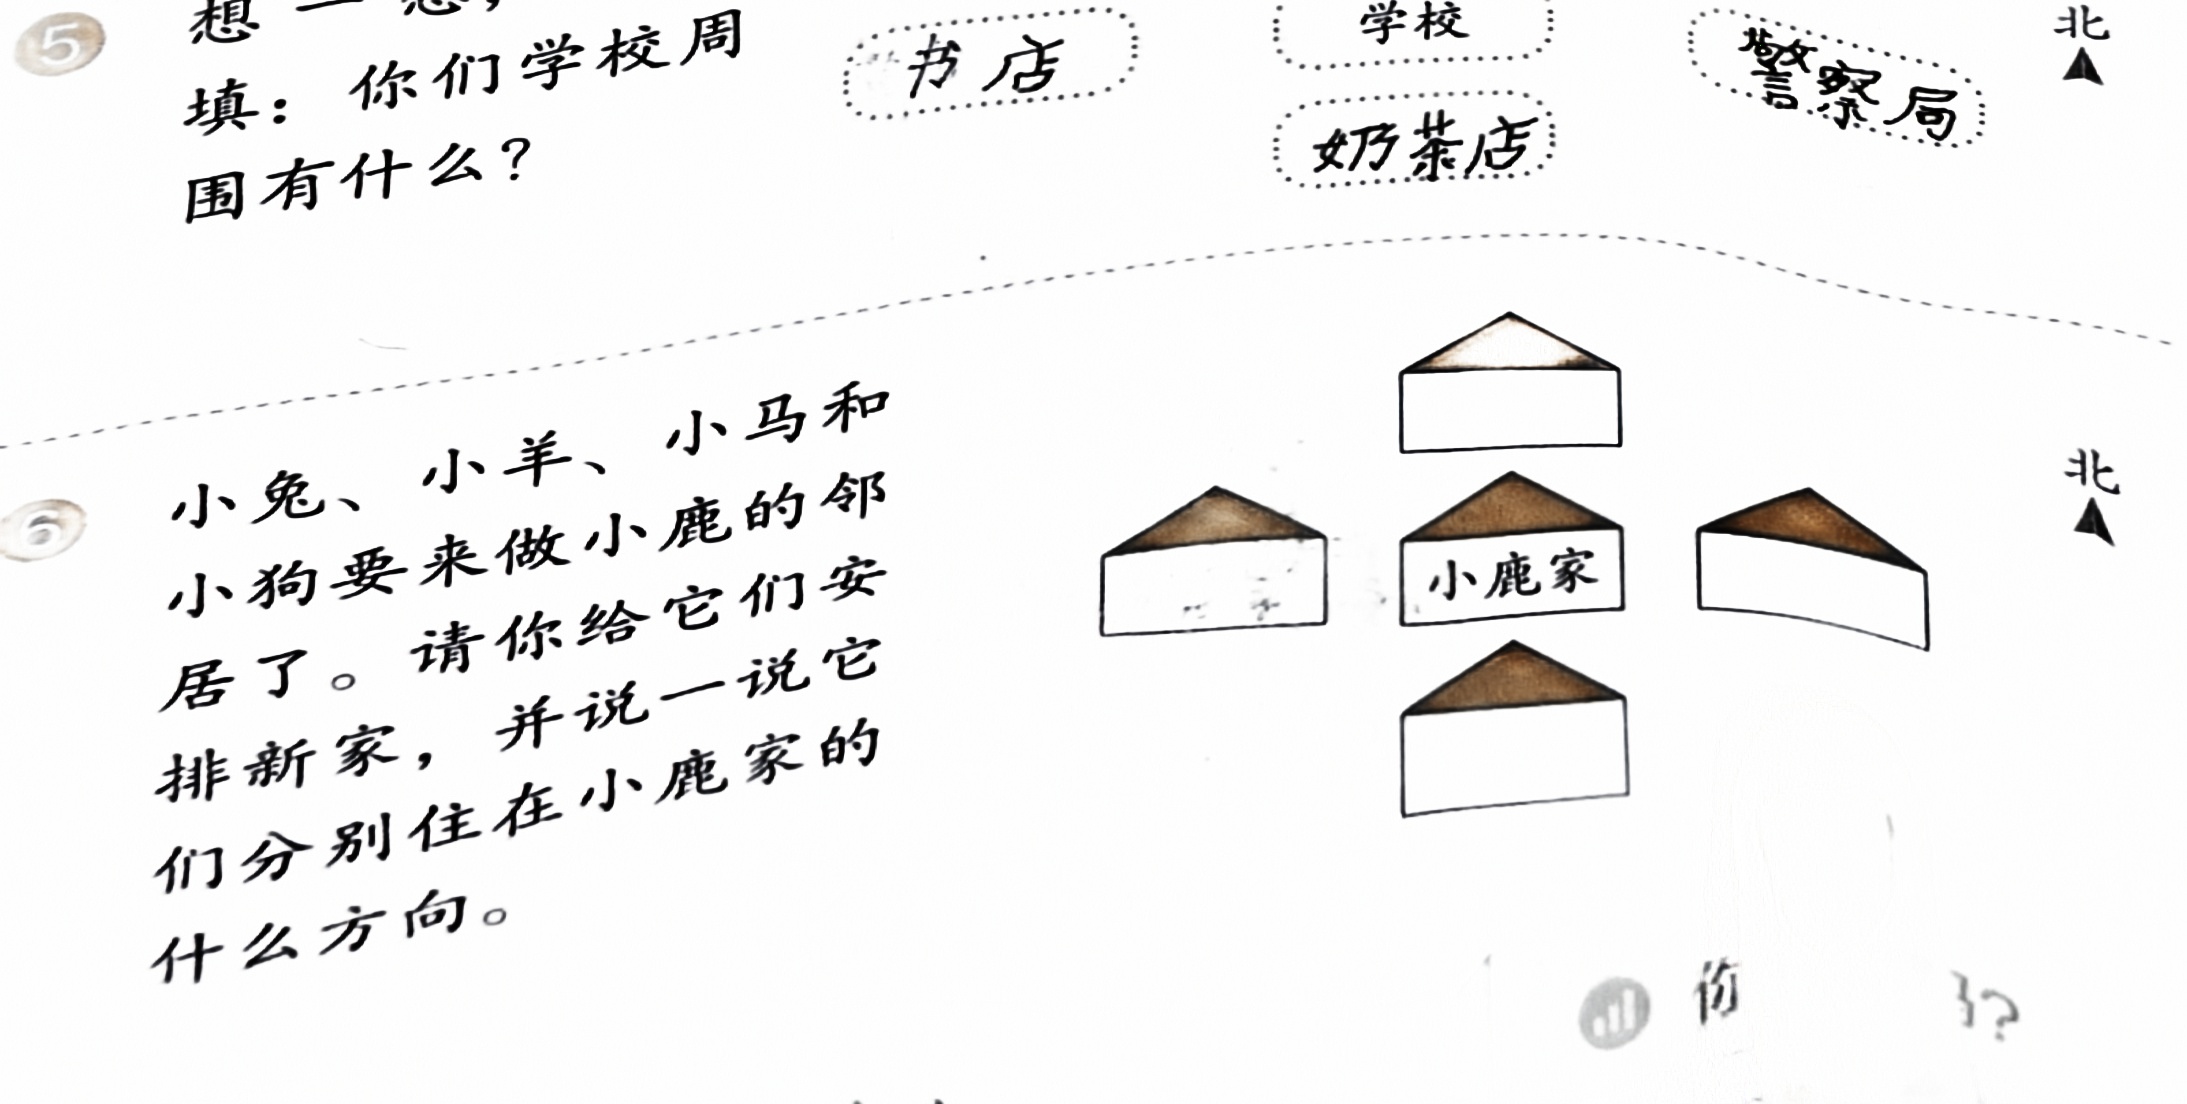 5
填：你们学校周
围有什么？
书店
学校
警察局
奶茶店
北
6
小兔、小羊、小马和
小狗要来做小鹿的邻
居了。请你给它们安
排新家，并说一说它
们分别住在小鹿家的
什么方向。
小鹿家
北
你
？